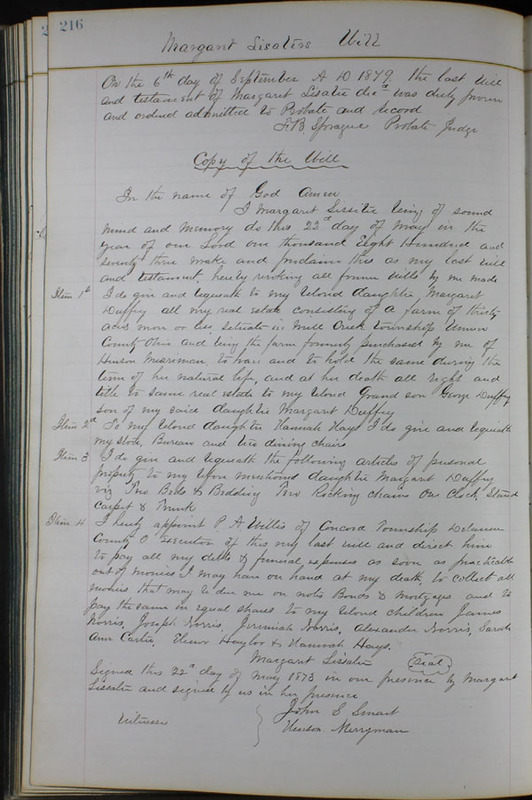 216
Margaret Lisaters Will
On the 6th day of September A D 1879 the last Will
and testament of Margaret Lisater decd was duly proven
and ordered admitted to Probate and Record
F B Sprague Probate Judge
Copy of the Will
In the name of God Amen
I Margaret Lissiter being of sound
mind and memory do this 22d day of May in the
year of our Lord one thousand Eight Hundred and
seventy three make and proclaim this as my last will
and testament, hereby revoking all former Wills by me made
Item 1st I do give and bequeath to my beloved daughter Margaret
Duffey all my real estate consisting of a farm of thirty
acres more or less, situate in Mill Creek Township Union
County Ohio and being the farm formerly purchased by me of
Henson Merriman, to have and to hold the same during the
term of her natural life, and at her death all right and
title to same real estate to my beloved Grand son George Duffey
son of my said daughter Margaret Duffey
Item 2d To my beloved daughter Hannah Hays I do give and bequeath
my stove, Bureau and two dining chairs
Item 3 I do give and bequeath the following articles of personal
property to my above mentioned daughter Margaret Duffey
viz Two Beds & Bedding Two Rocking chairs One Clock, Stand
Carpet & Trunk
Item 4 I hereby appoint P. A Willis of Concord Township Delaware
County O Executor of this my last will and direct him
to pay all my debts & funeral expenses as soon as practicable
out of monies I may have on hand at my death, to collect all
monies that may be due me on notes Bonds & mortgages and to
pay the same in equal shares to my beloved children James
Norris, Joseph Norris, Jeremiah Norris, Alexander Norris, Sarah
Ann Carter, Elenor Haylor & Hannah Hays.
Margaret Lissiter Seal
Signed this 22d day of May 1873 in our presence by Margaret
Lissiter and signed by us in her presence
John E Smart
Witnesses
Henson Merryman